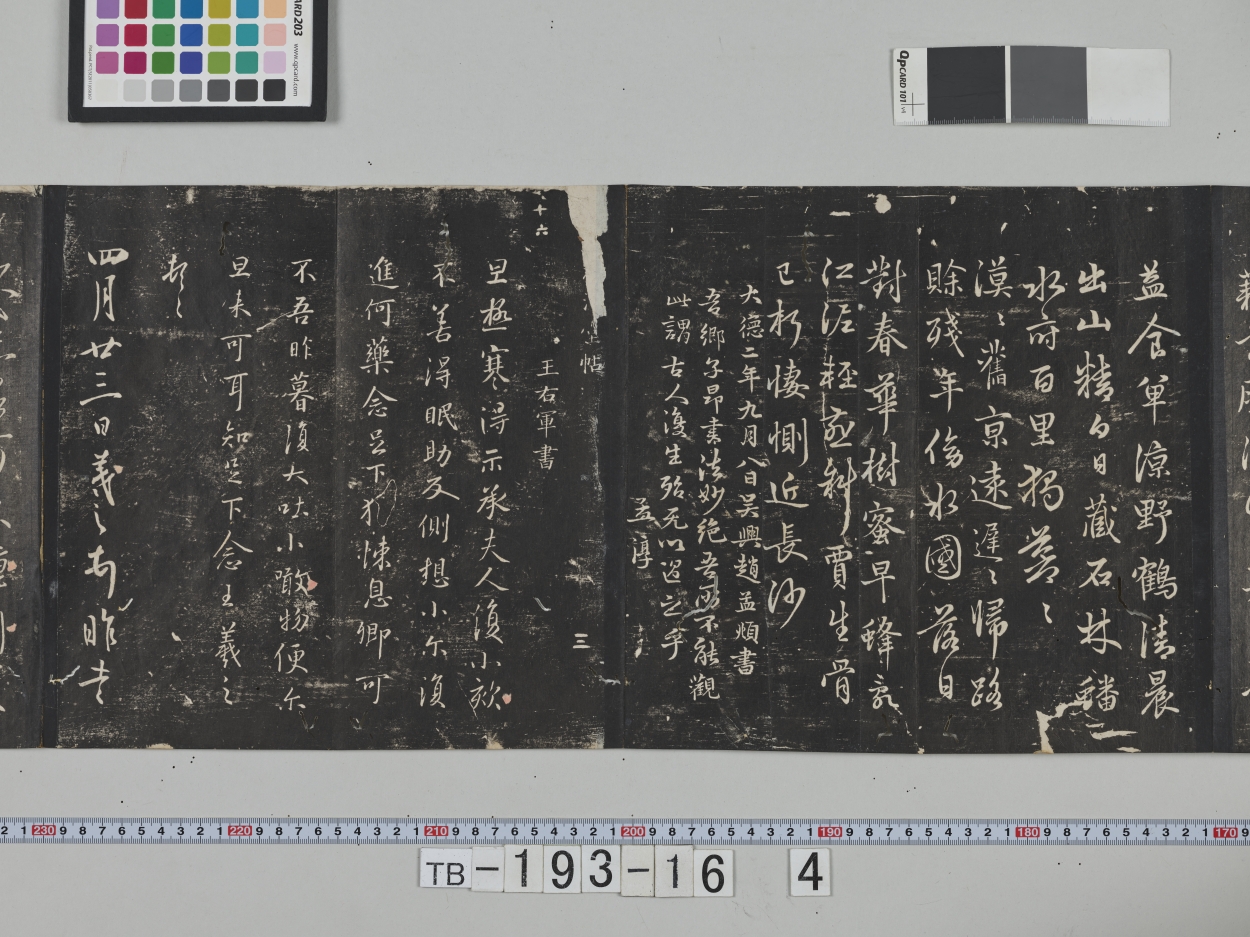 益食單涼野鶴清晨
出山精白日藏石林蟠
水府百里獨蒼〻
漠〻舊京遠遲〻歸路
賒殘年傍水國落日
對春華樹蜜早蜂亂
江泥輕燕斜賈生骨
已朽悽惻近長沙
大德二年九月八日吴興趙孟頫書
吾鄉子昂書法妙絶吾不能觀
此謂古人復生殆无以過之乎
孟淳
三
帖
王右軍書
十六
旦極寒得示承夫人復小欬
不善得眠助反側想小尔復
進何藥念足下猶悚息卿可
不吾昨暮復大吐小噉物便尔
旦来可耳知足下念王羲之
頓〻
四月廿三日羲之頓首昨書
QpCARD 101 v4
CARD 203
www.qpcard.com
TB-193-16 4
230 220 210 200 190 180 170